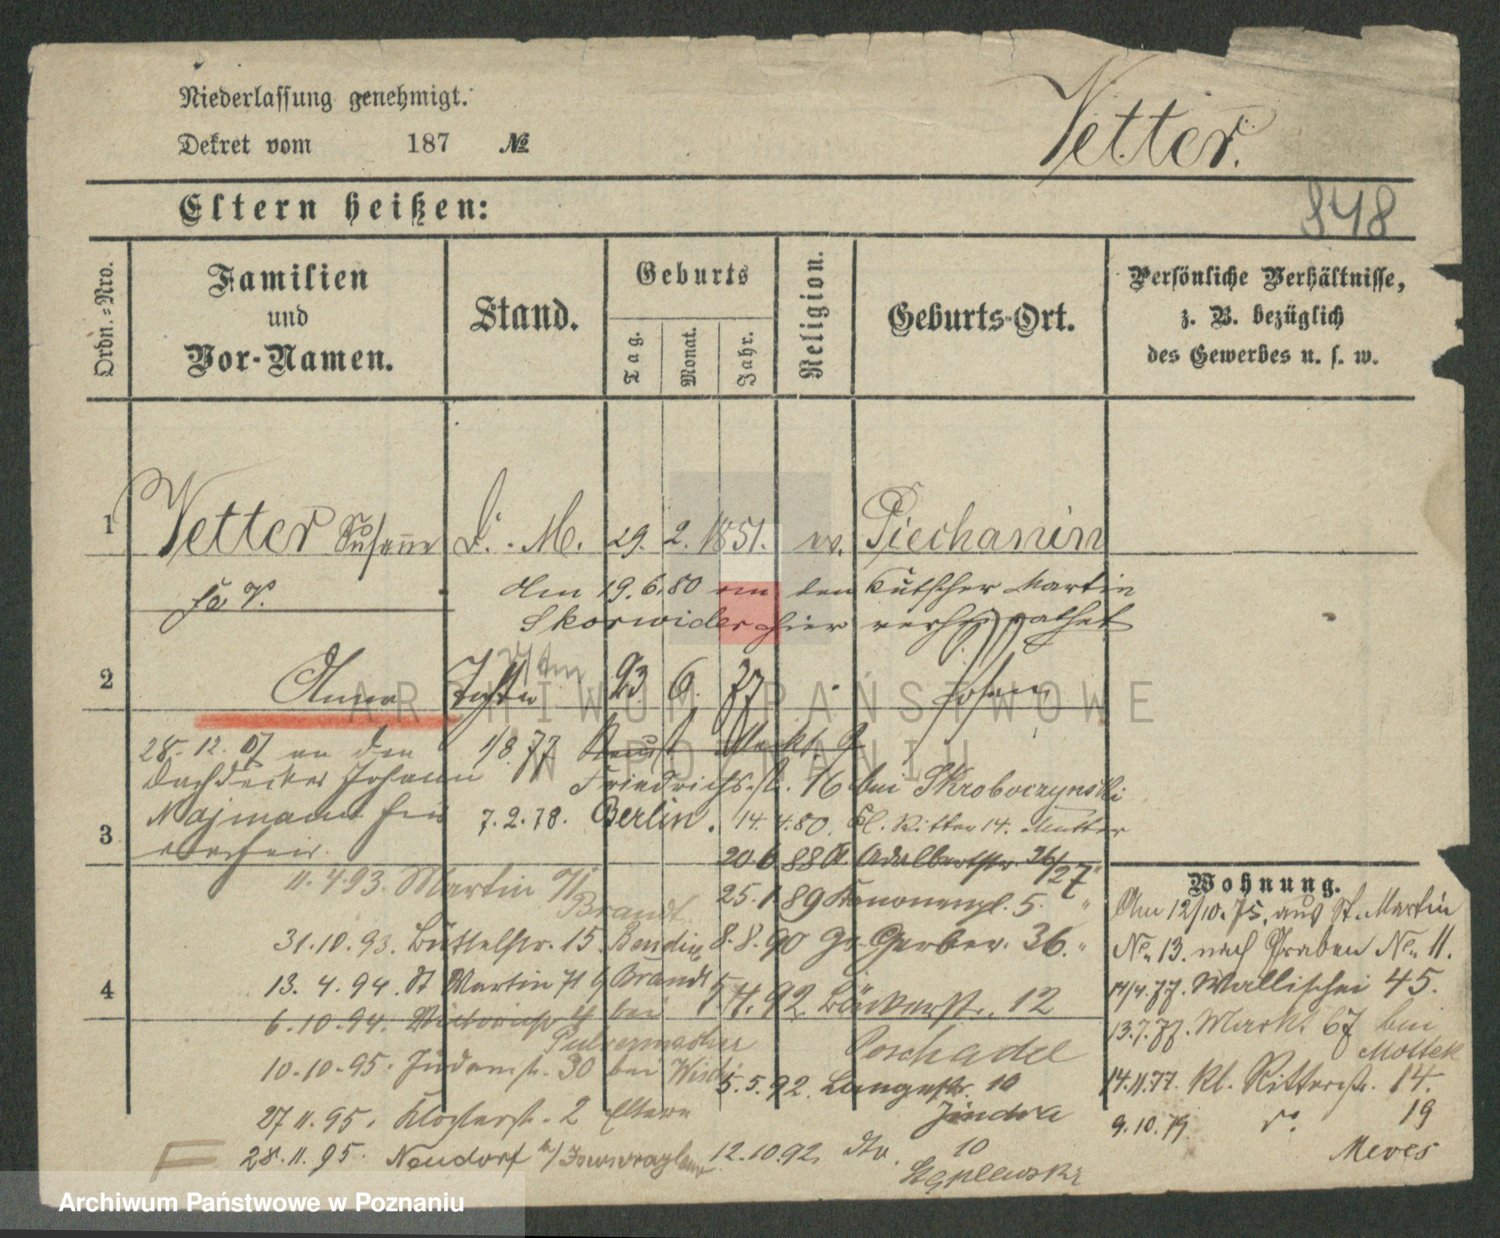 Niederlassung genehmigt.
Dekret vom 187 №
Vetter.
Eltern heißen:
848
Ordn.-Nro.
Familien
und
Vor-Namen.
Stand.
Geburts
Tag.
Monat.
Jahr.
Religion.
Geburts-Ort.
Persönliche Verhältnisse,
z. B. bezüglich
des Gewerbes u. s. w.
1 Vetter Susanne D. M. 29. 2. 1851. ev. Piechanin
Am 19.6.80 den Kutscher Martin
Skorwider hier verheirathet
2 Anna Tochter 23 6. 77 Posen
28.12.07 an den
Dachdecker Johann
Najmann hier
verheir.
1/8.77 Markt 9
Friedrichs. 16 bei Skroboczynski
3
7.2.78. Berlin. 14.4.80. Kl. Ritter 14. Mutter
20 6 88 Adalbertstr. 26/27
11.4.93. Martin 71
Brandt
25.1.89 Kanonenpl. 5.
31.10.93. Büttelstr. 15. 8.8.90 Gr. Gerber. 36.
4
13.4.94. St Martin 71 b/ Brandt 92 Bäckerstr. 12
6.10.94. bei
Pulvermacher
Poschadel
10.10.95. Judenstr. 30 bei 5.5.92 Langestr. 10
Jindra
27.11.95. Klosterstr. 2 Eltern
28.11.95. Neudorf b/ 12.10.92. dto. 10
Wohnung.
Am 12/10.75. aus St. Martin
No. 13. nach Graben No. 11.
14/4.77. Wallischei 45.
13.7.77. Markt 67 bei
Mottek
14.11.77. kl. Ritterstr. 14.
9.10.79. do 19
Meves
ARCHIWUM PAŃSTWOWE
W POZNANIU
Archiwum Państwowe w Poznaniu